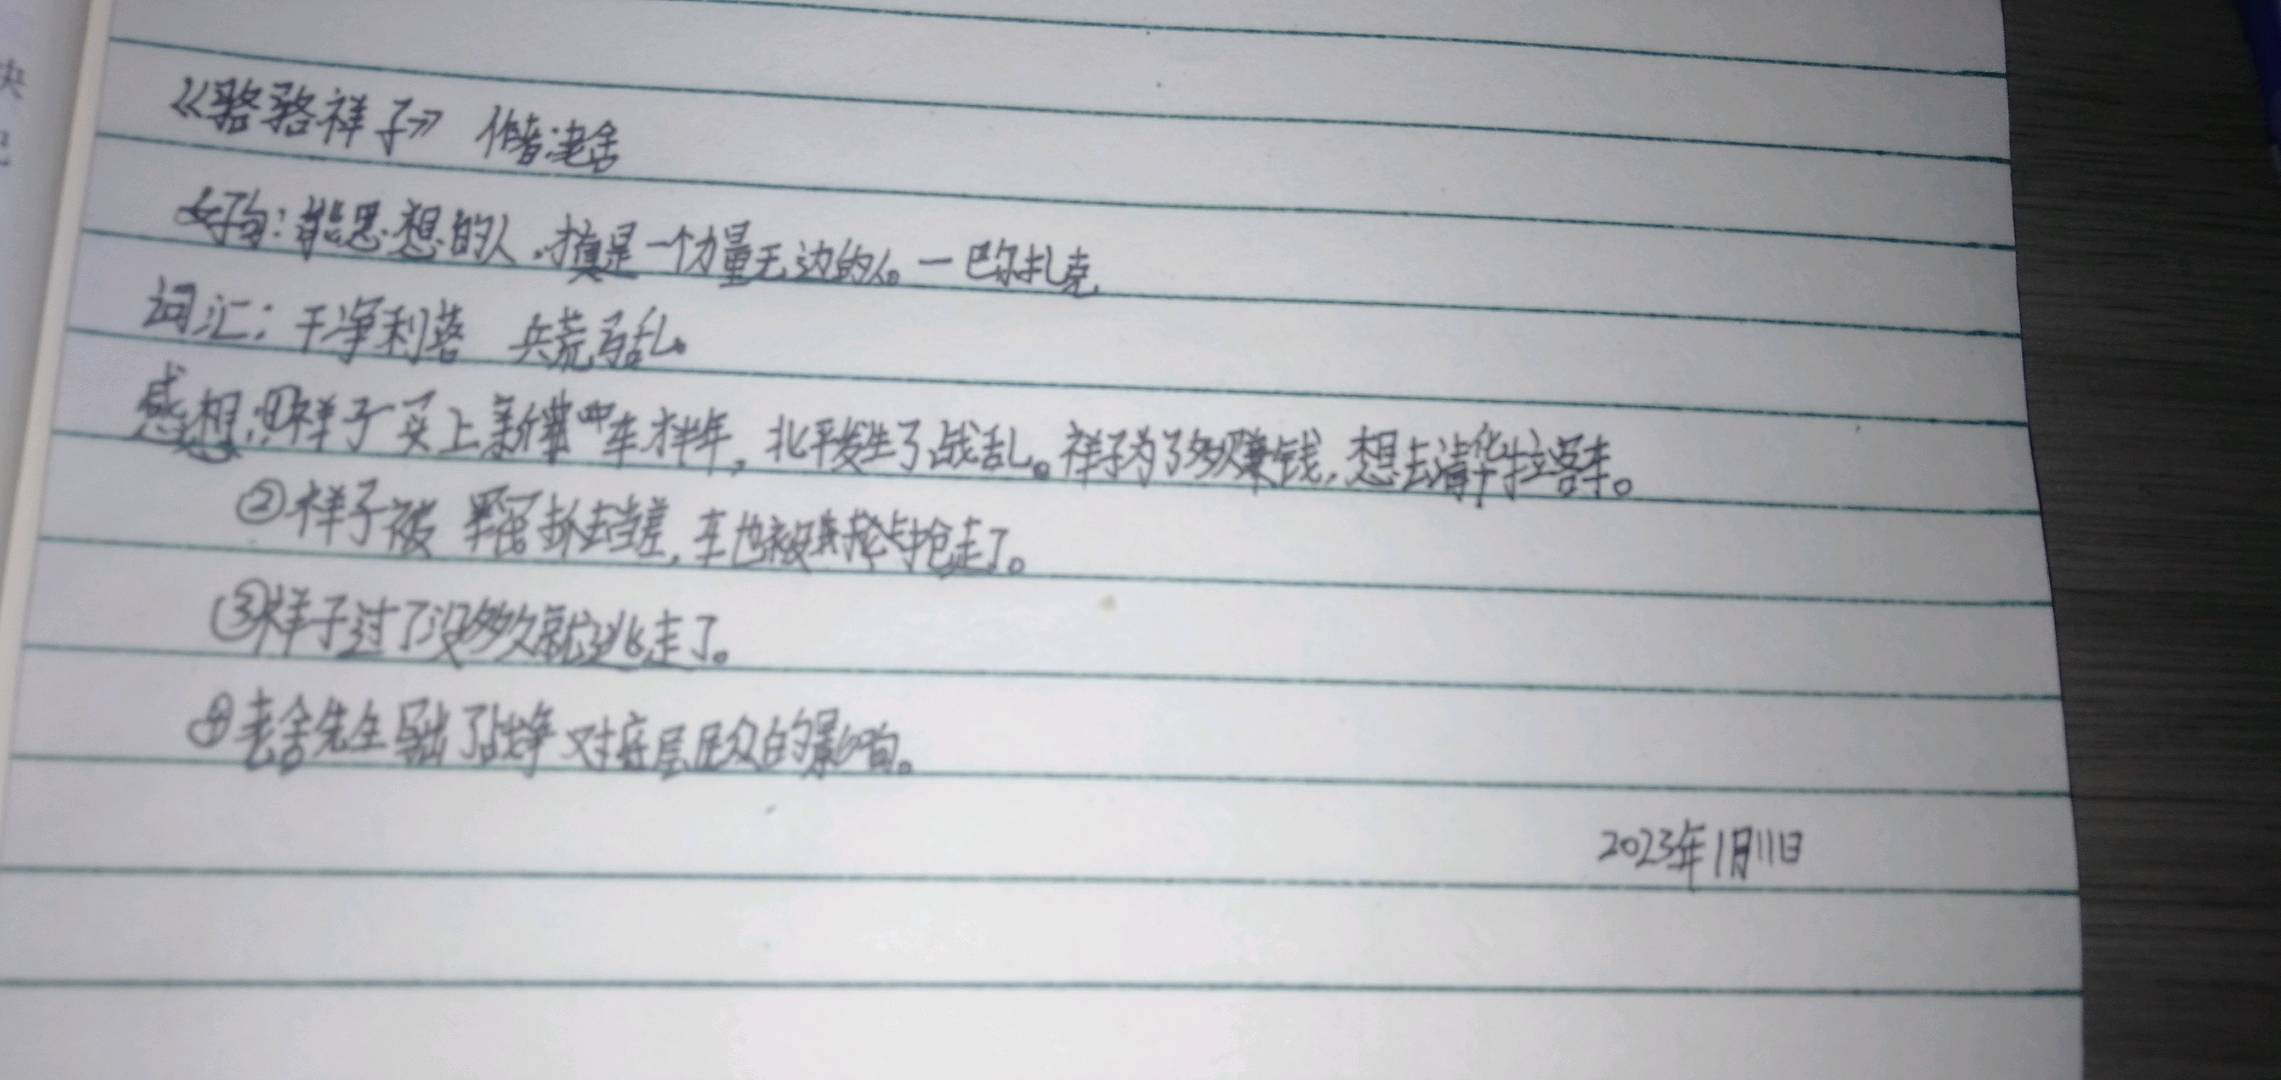 《骆骆祥子》 作者:老舍
好句:能思想的人,才真是一个力量无边的人。一巴尔扎克
词汇:干净利落 兵荒马乱。
感想:①祥子买上新 车才半年,北平发生了战乱。祥子为了多赚钱,想去清华拉客车。
②祥子被 抓去当差,车也被 抢走了。
③祥子过了没多久就逃走了。
④老舍先生写出了战争对底层民众的影响。
2023年1月11日
央